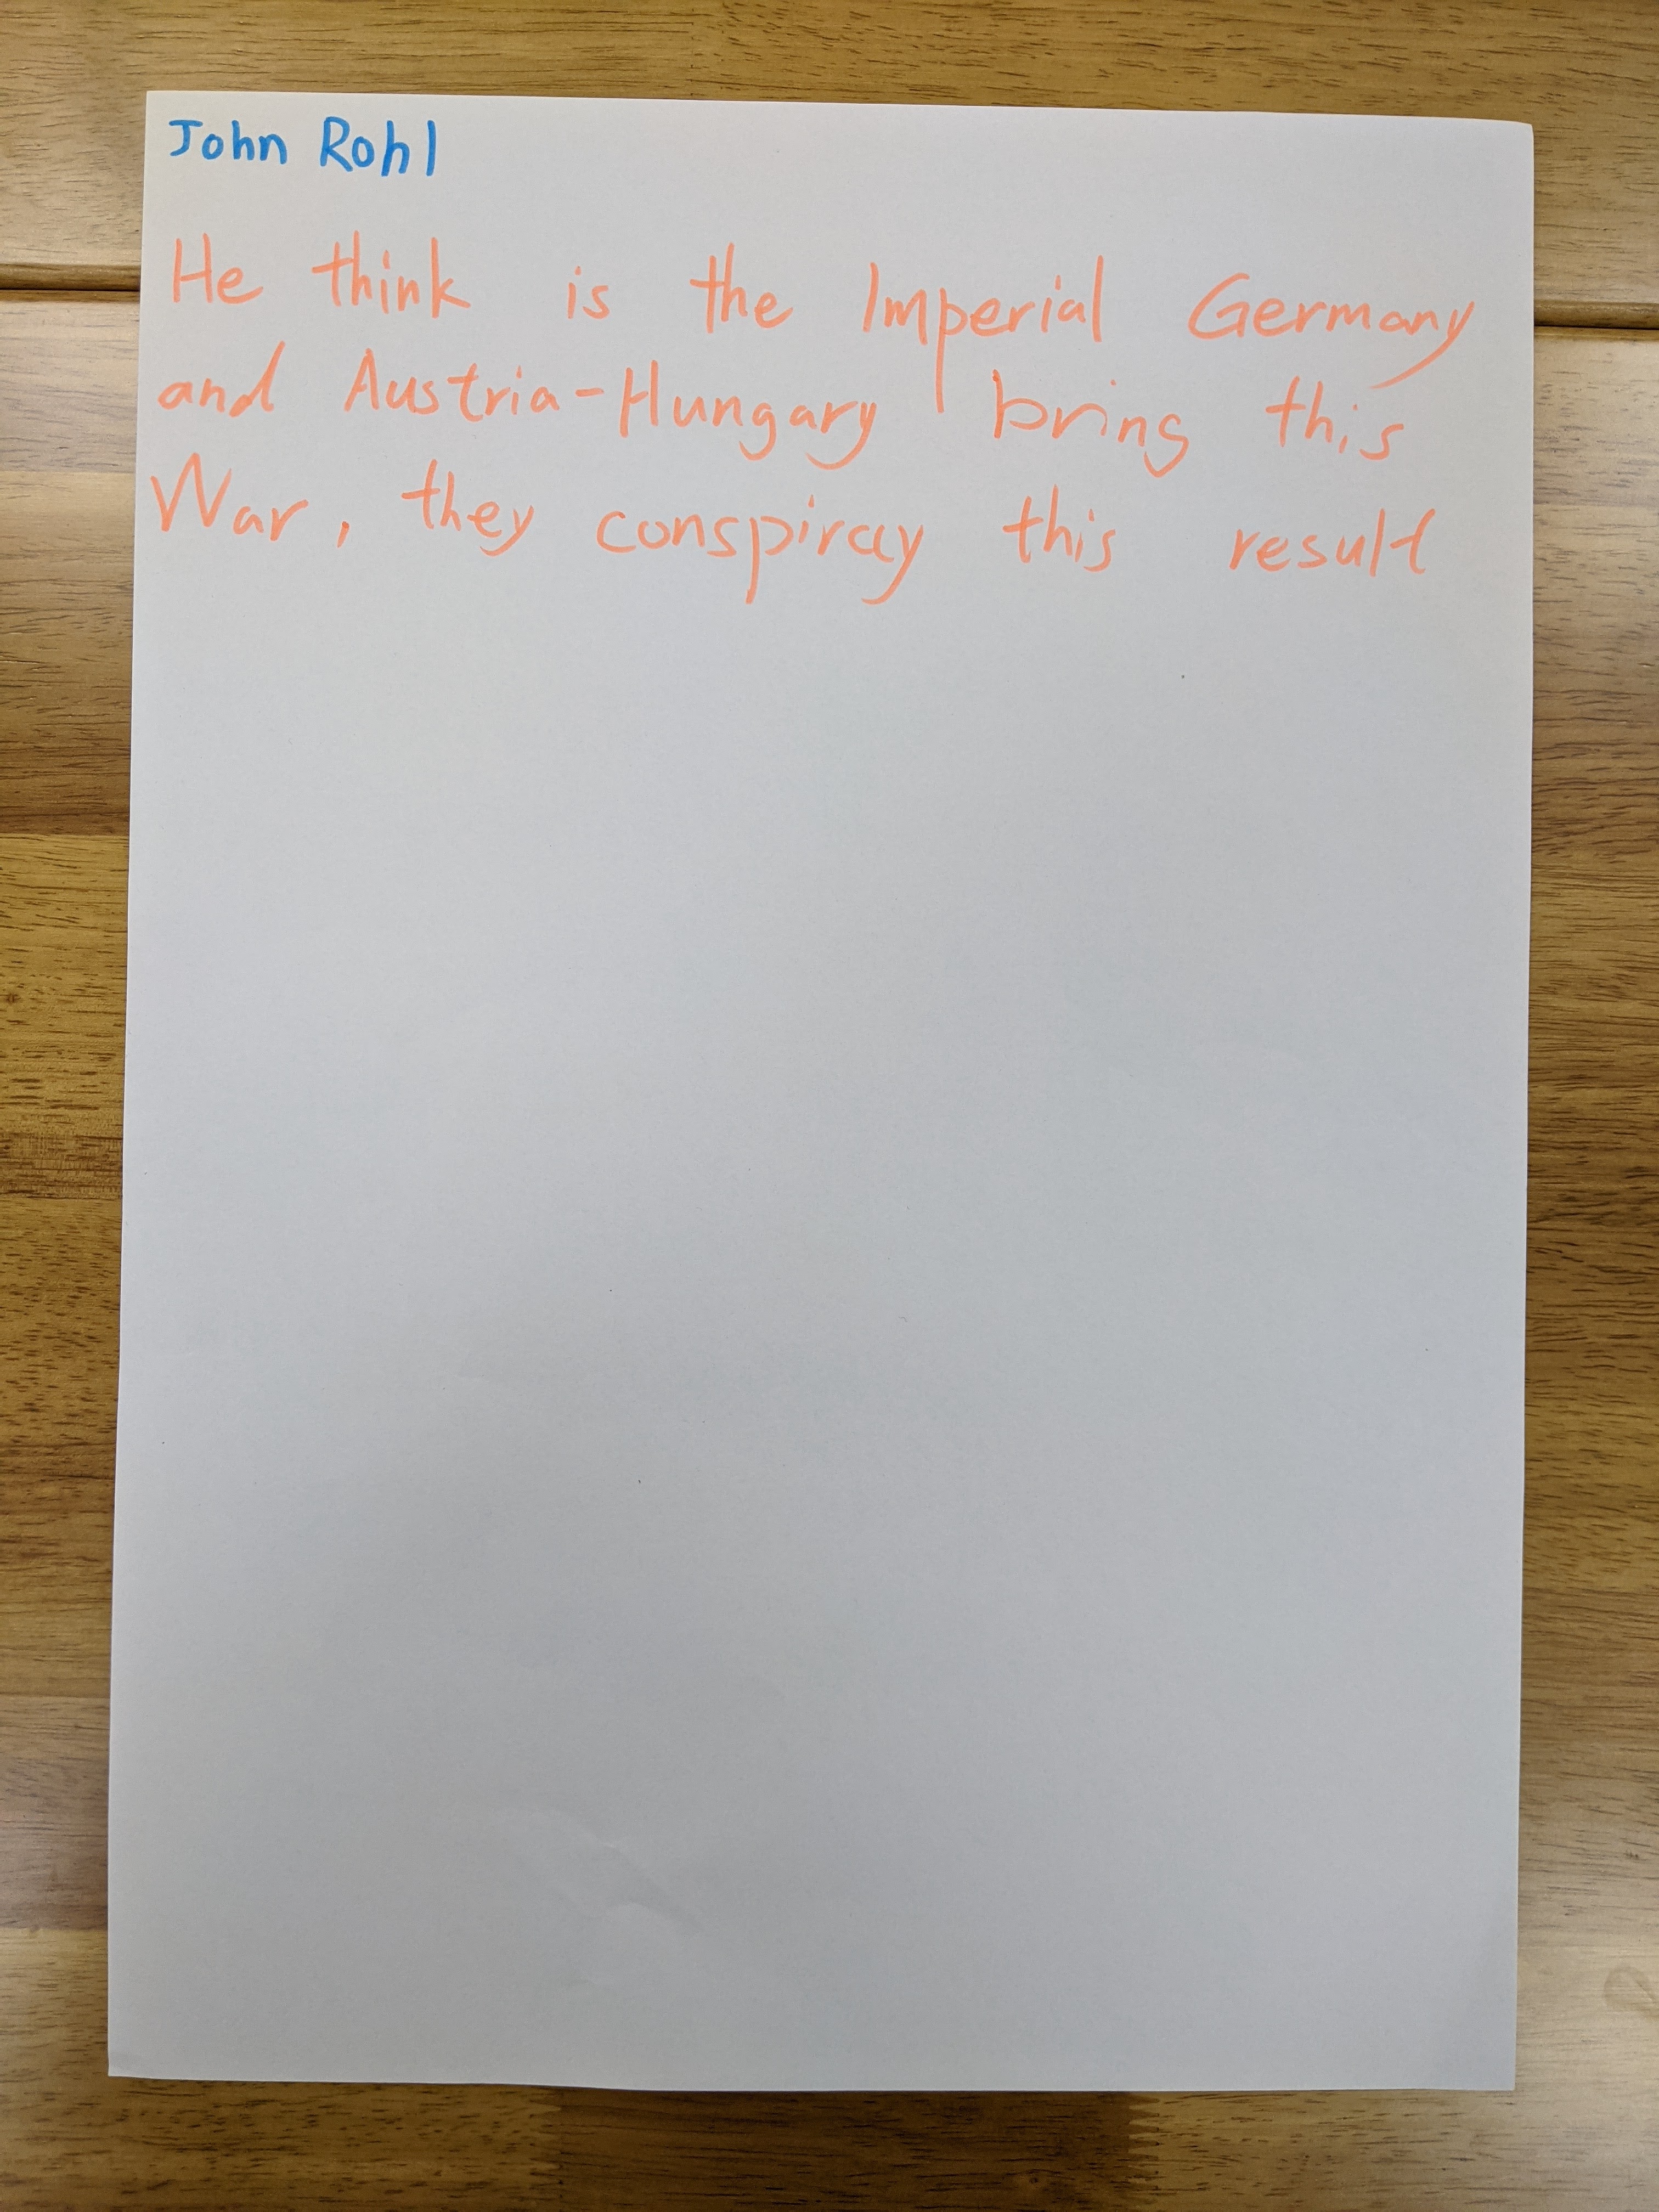 John Rohl
He think is the Imperial Germany
and Austria-Hungary bring this
War, they conspiray this result